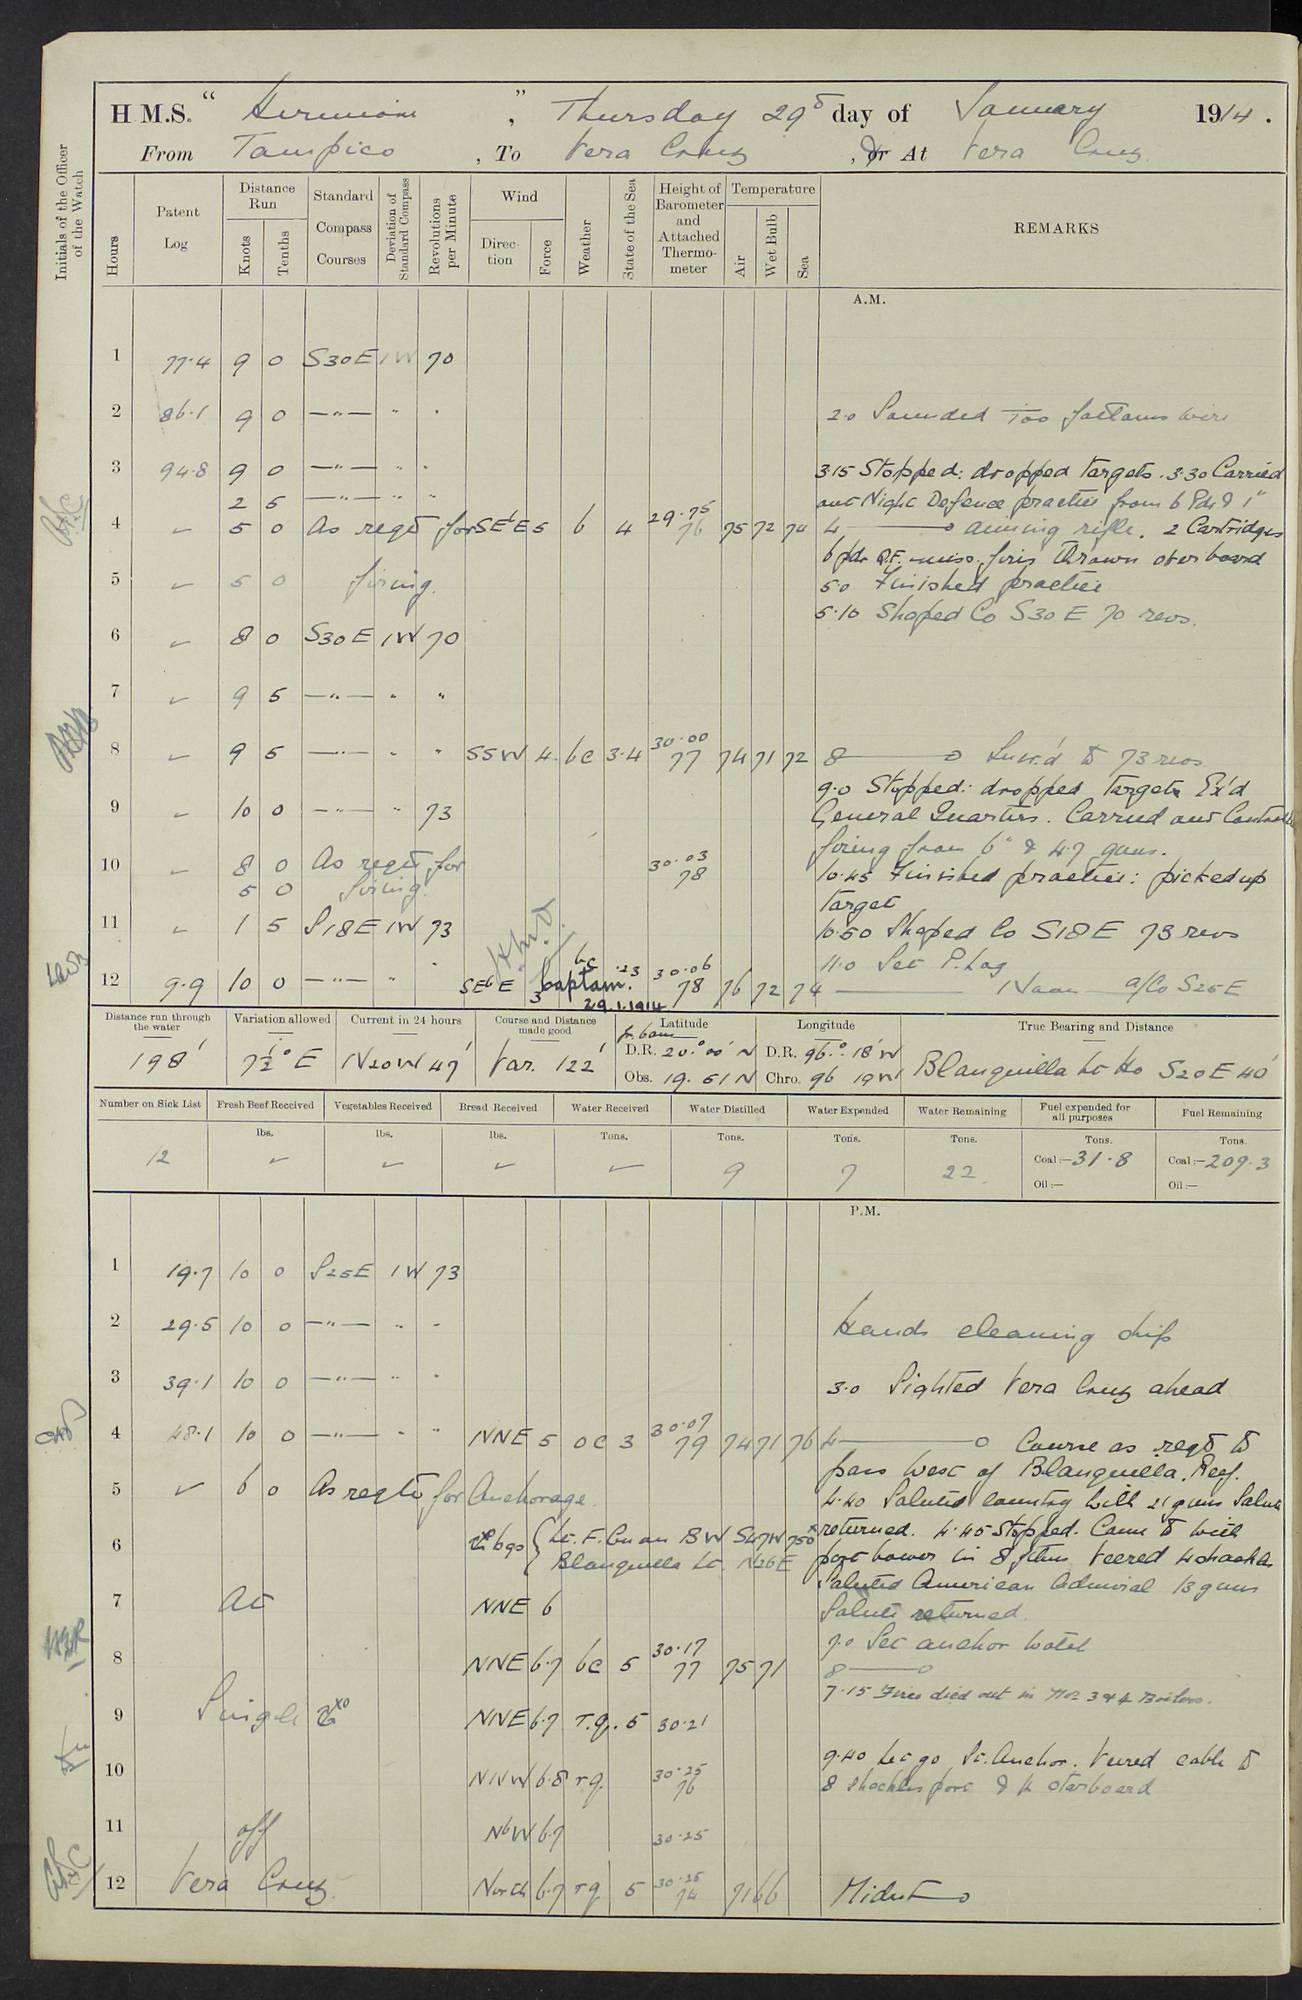 H.M.S. "Hermione", Thursday 29th day of January 1914.
From Tampico, To Vera Cruz, or At Vera Cruz
Initials of the Officer of the Watch
Hours
Patent Log
Distance Run
Knots
Tenths
Standard Compass Courses
Deviation of Standard Compass
Revolutions per Minute
Wind
Direction
Force
Weather
State of the Sea
Height of Barometer and Attached Thermometer
Temperature
Air
Wet Bulb
Sea
REMARKS
A.M.
1 77.4 9 0 S30E 1W 70
2 86.1 9 0 —"— " " 2.0 Sounded 100 fathoms wire
3 94.8 9 0 —"— " " 3.15 Stopped: dropped targets. 3.30 Carried
2 5 —"— " " out Night Defence practice from 6 Pdr & 1"
4 ✓ 5 0 As reqd for SEbE 5 b 4 29.75 76 75 72 74 4———o aiming rifle. 2 Cartridges
6 pdr Q.F. miss-fires thrown overboard
5 ✓ 5 0 firing. 5.0 Finished practice
5.10 Shaped Co S30E 70 revs.
6 ✓ 8 0 S30E 1W 70
7 ✓ 9 5 —"— " "
8 ✓ 9 5 —"— " " SSW 4 bc 3.4 30.00 77 74 71 72 8———o Incr'd to 73 revs
9.0 Stopped: dropped targets Ex'd
9 ✓ 10 0 —"— " 73 General Quarters. Carried out Controlled
firing from 6" & 4.7 guns.
10 ✓ 8 0 As reqd for 30.03 78 10.45 Finished practice: picked up
5 0 firing. target
11 ✓ 1 5 S18E 1W 73 10.50 Shaped Co S18E 73 revs
11.0 Set P. Log
12 9.9 10 0 —"— " " SEbE 3 bc .23 30.06 78 76 72 74 ——— Noon ——— a/Co S25E
Captain.
29.1.1914
Distance run through the water
198'
Variation allowed
7½° E
Current in 24 hours
N20W 47'
Course and Distance made good
Var. 122'
Latitude
fr. 6am
D.R. 20.° 00' N
Obs. 19. 51 N
Longitude
D.R. 96.° 18' W
Chro. 96 19 W
True Bearing and Distance
Blanquilla Lt Ho S20E 40'
Number on Sick List
12
Fresh Beef Received
lbs.
✓
Vegetables Received
lbs.
✓
Bread Received
lbs.
✓
Water Received
Tons.
✓
Water Distilled
Tons.
9
Water Expended
Tons.
7
Water Remaining
Tons.
22
Fuel expended for all purposes
Tons.
Coal:—31.8
Oil:—
Fuel Remaining
Tons.
Coal:—209.3
Oil:—
P.M.
1 19.7 10 0 S25E 1W 73
2 29.5 10 0 —"— " " Hands cleaning ship
3 39.1 10 0 —"— " " 3.0 Sighted Vera Cruz ahead
4 48.1 10 0 —"— " " NNE 5 oc 3 30.07 79 74 71 76 4———o Course as reqd to
pass West of Blanquilla Reef.
5 ✓ 6 0 As reqd for Anchorage. 4.40 Saluted country with 21 guns Salute
returned. 4.45 Stopped. Came to with
6 bgs { Lt. F. Guan BW S47W 750x
Blanquilla Lt. N26E port bower in 8 fthms Veered 4 shackles
Saluted American Admiral 13 guns
7 At NNE 6 Salute returned.
7.0 Set anchor watch
8 NNE 6.7 bc 5 30.17 77 75 71 8———o
7.15 Fires died out in Nos 3 & 4 Boilers.
9 Single NNE 6.7 r.q. 5 30.21
9.40 Let go St. Anchor. Veered cable to
10 NNW 6.8 rq. 30.25 76 8 shackles port & 4 starboard
11 off NbW 6.7 30.25
12 Vera Cruz. North 6.7 rq 5 30.25 74 71 66 Midnt—o